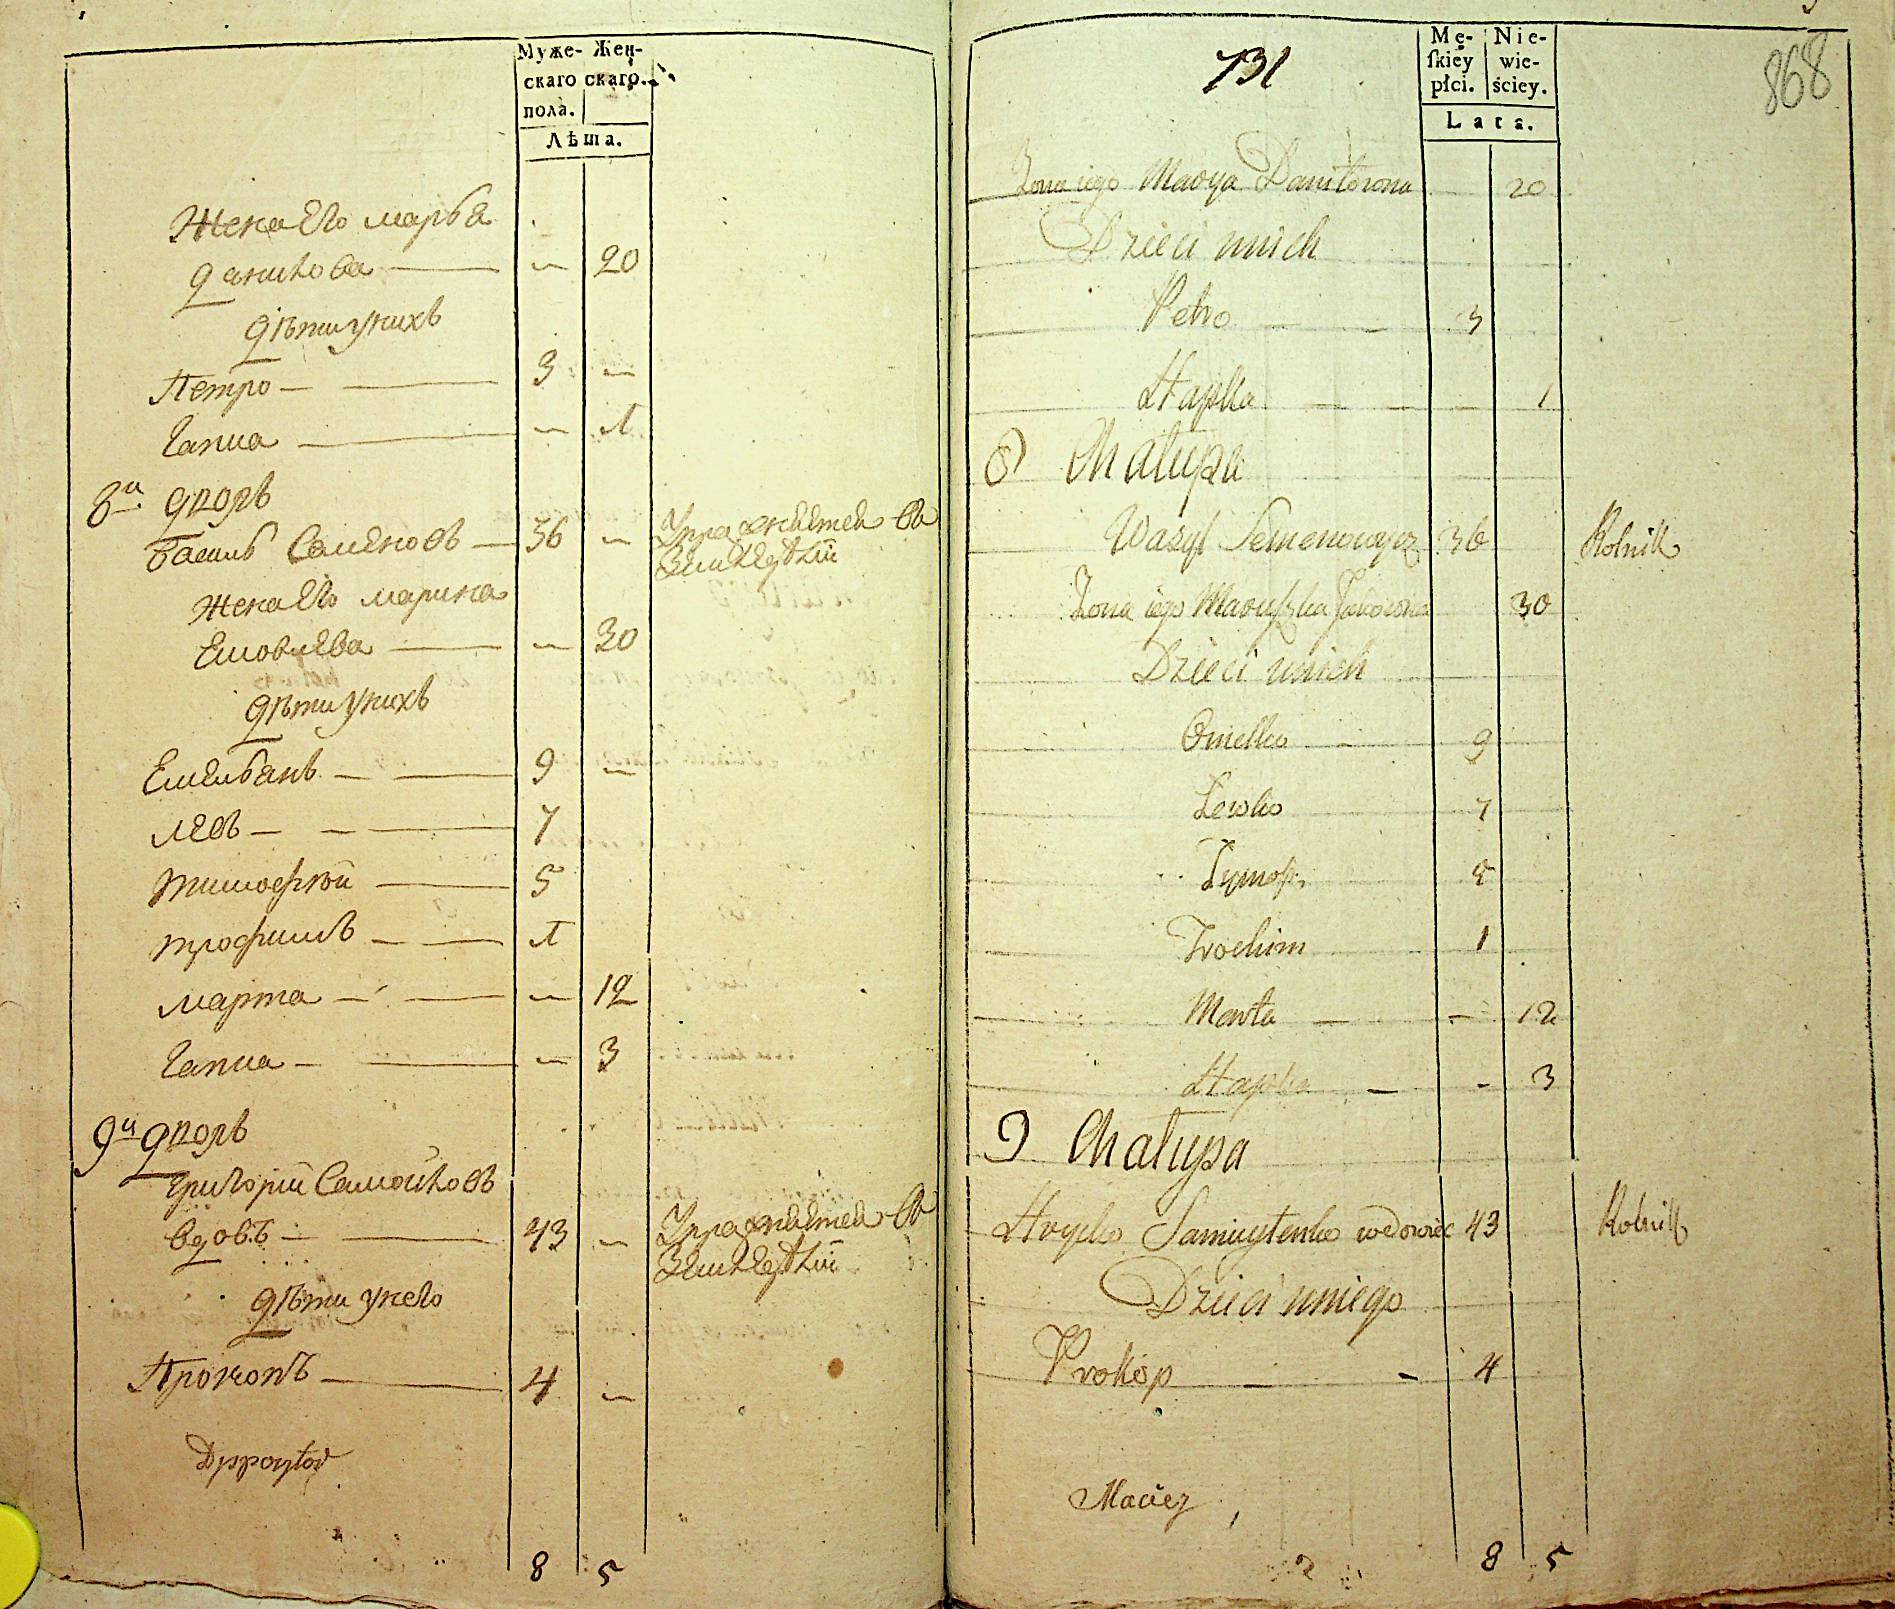 Муже- Жен-
скаго скаго.
пола.
Лѣта.
Жена Его марья
данилова — — 20
дѣти у нихъ
Петро — 3 —
Гапка — — 1
8й дворъ
Василь Семеновъ — 36 — Упражняется въ
Земледѣлїи
Жена Его марина
Яковлева — — 30
дѣти у нихъ
Емельянъ — — 9 —
левъ — — 7
тимофѣй — 5
трофимъ — — 1
марта — — — 12
Гапка — — — 3
9й дворъ
григорїй Самойловъ
вдовъ — — 43 — Упражняется въ
Земледѣлїи
дѣти у него
Прокопъ — 4 —
8 5
731
868
Mę- Nie-
skiey wie-
płci. ściey.
Lata.
Żona iego Marya Daniłowna 20
Dzieci unich
Petro — — 3
Hapka — — — 1
8 Chałupa
Wasyl Semenowycz 36 Rolnik
Żona iego Maruszka Jakowna 30
Dzieci unich
Omelko — 9
Lewko 7
Tymofi 5
Trochim 1
Marta — — 12
Hapka — - 3
9 Chałupa
Hryćko Samuytenko wdowiec 43 Rolnik
Dzieci uniego
Prokop — - 4
Maciey
8 5